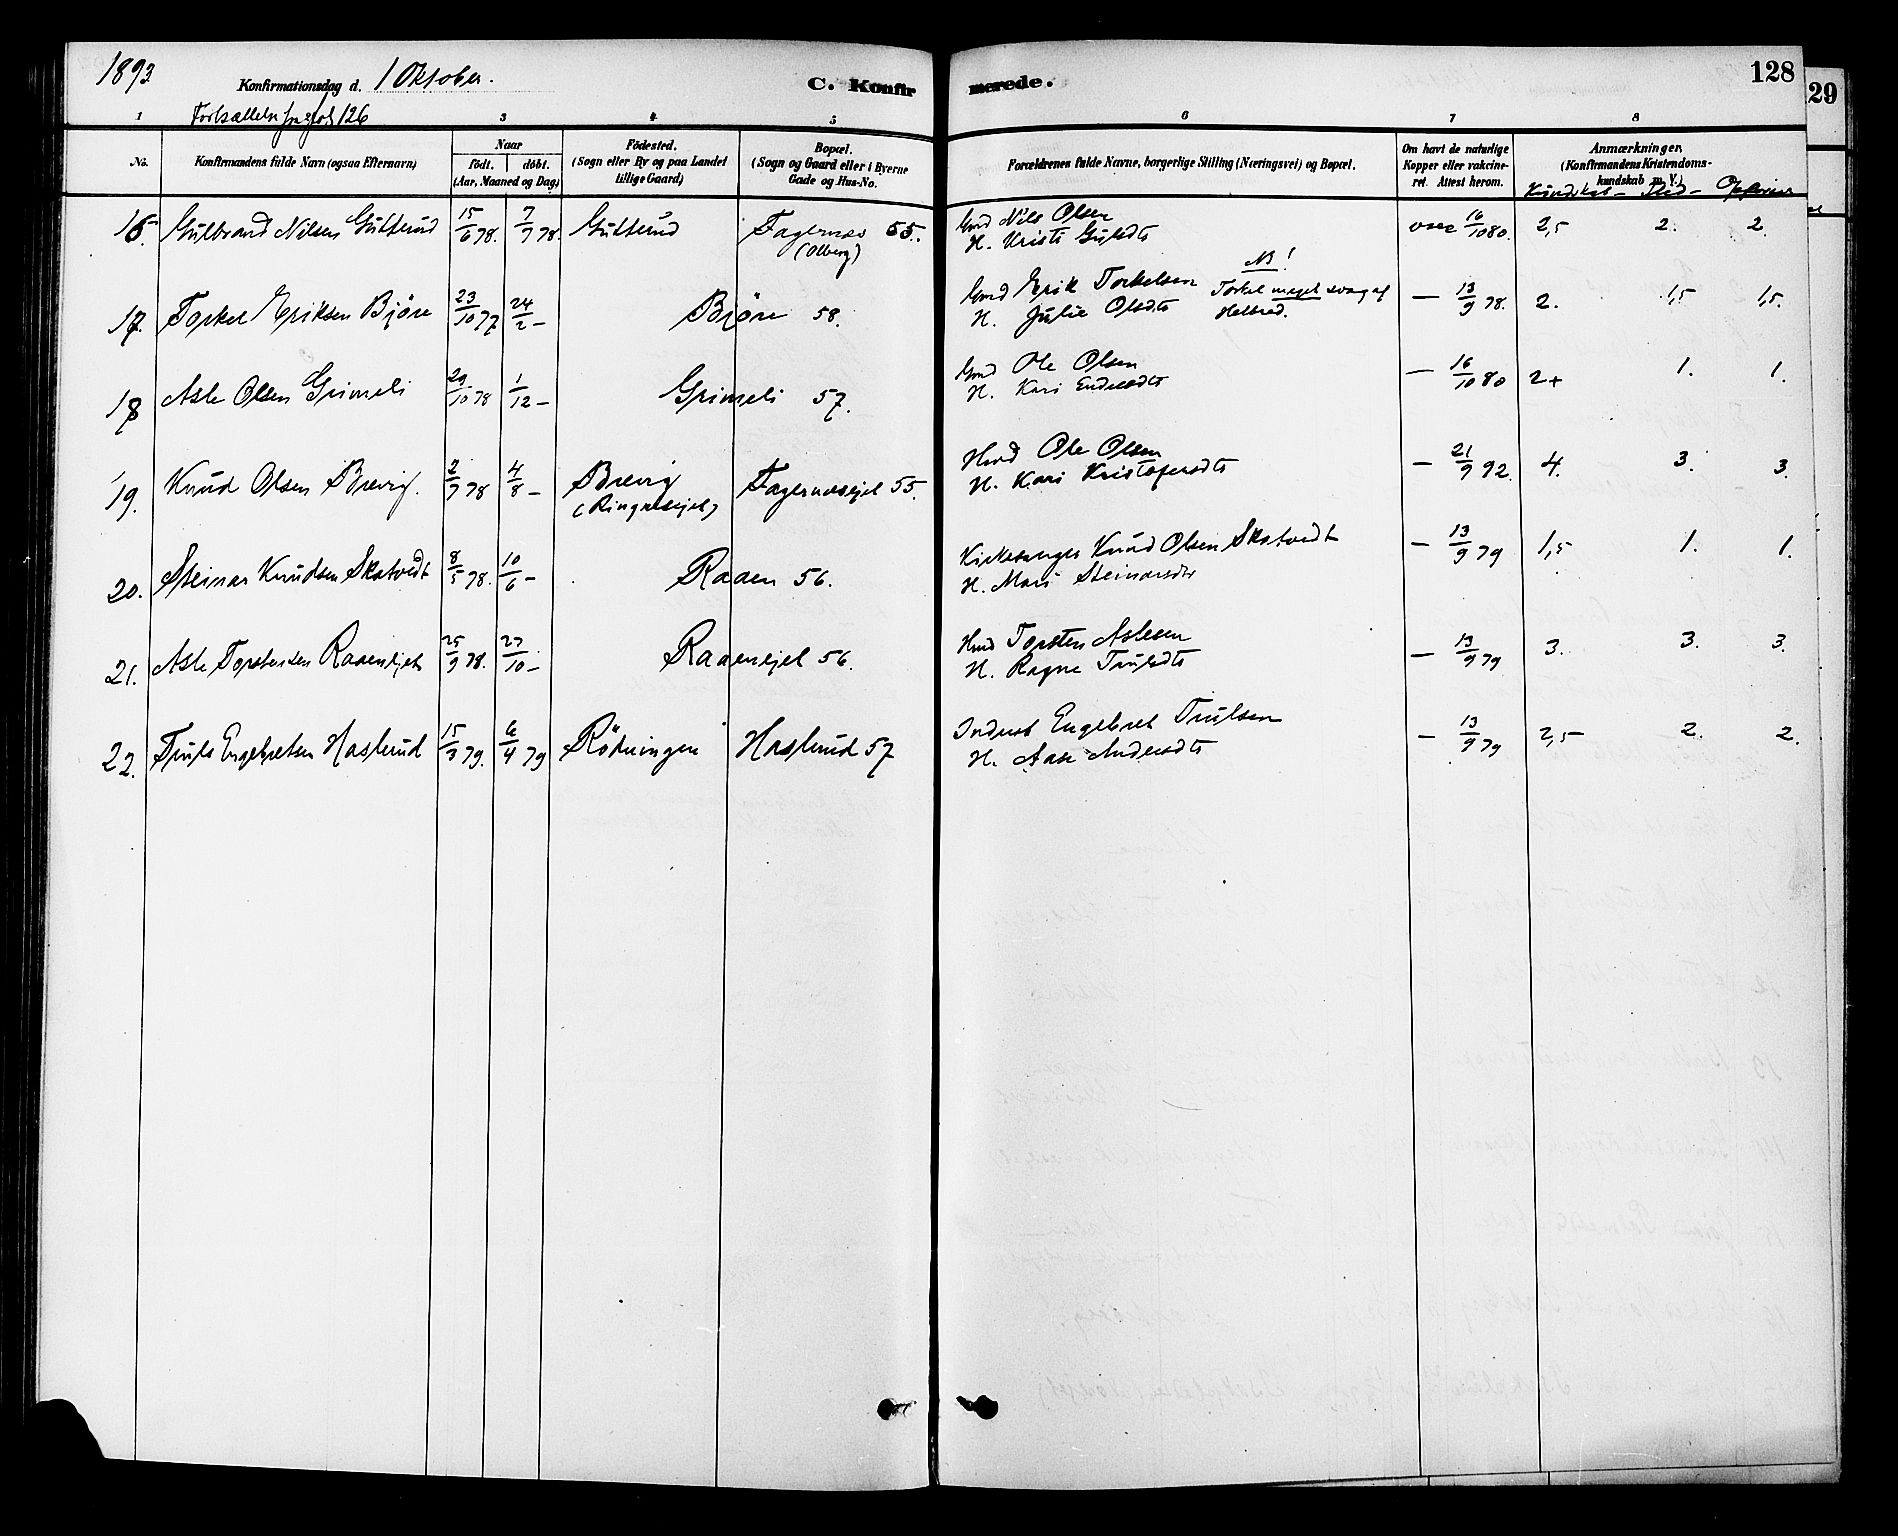 1893
Konfirmationsdag d. 1 Oktober.
C. Konfirmerede.
128
29
Fortsættelse fra fol 126
1 3 4 5 6 7 8
No.
Konfirmandens fulde Navn (ogsaa Efternavn)
Naar
födt. döbt.
(Aar, Maaned og Dag)
Födested.
(Sogn eller By og paa Landet
tillige Gaard)
Bopæl.
(Sogn og Gaard eller i Byerne
Gade og Hus-No.
Forældrenes fulde Navne, borgerlige Stilling (Næringsvei) og Bopæl.
Om havt de naturlige
Kopper eller vakcine-
ret. Attest herom.
Anmærkninger.
(Konfirmandens Kristendoms-
kundskab m. V.)
Kundskab - Flid -
16. Gulbrand Nilsen Gutterud 15/6 78. 7/7 78. Gutterud Fagernæs 55. Gmd Nils Olsen vacc 16/10 80. 2,5 2. 2.
(Olberg) H. Kristi Gulsdt
NB!
17. Torkel Eriksen Björe 23/10 77 24/2 - Björe 58. Gmd Erik Torkelsen Torkel meget svag af — 13/9 78. 2. 1,5 1,5.
H. Julie Olsdt Helbred.
18 Asle Olsen Grimeli 29/10 78 1/12 - Grimeli 57. Gmd Ole Olsen — 16/10 80 2+ 1. 1.
H. Kari Endresdt
19. Knud Olsen Brevig. 2/7 78 4/8 - Brevig Fagernæsejet 55. Hmd Ole Olsen — 21/9 92. 4. 3. 3.
(Ringnesejet) H. Kari Kristofersdt
20. Steinar Knudsen Skatvedt 8/5 78. 10/6 - Raaen 56. Kirkesanger Knud Olsen Skatvedt — 13/9 79 1,5 1. 1.
H. Mari Steinarsdt
21. Asle Torstensen Raaenejet 25/9 78. 27/10 - Raaenejet 56. Hmd Torsten Aslesen — 13/9 79 3. 3. 3.
H. Ragne Trulsdt
22. Truls Engebretsen Haslerud 15/3 79. 6/4 79 Rötningen Haslerud 57 Inderst Engebret Trulsen — 13/9 79 2,5 2. 2.
H. Aase Andersdt